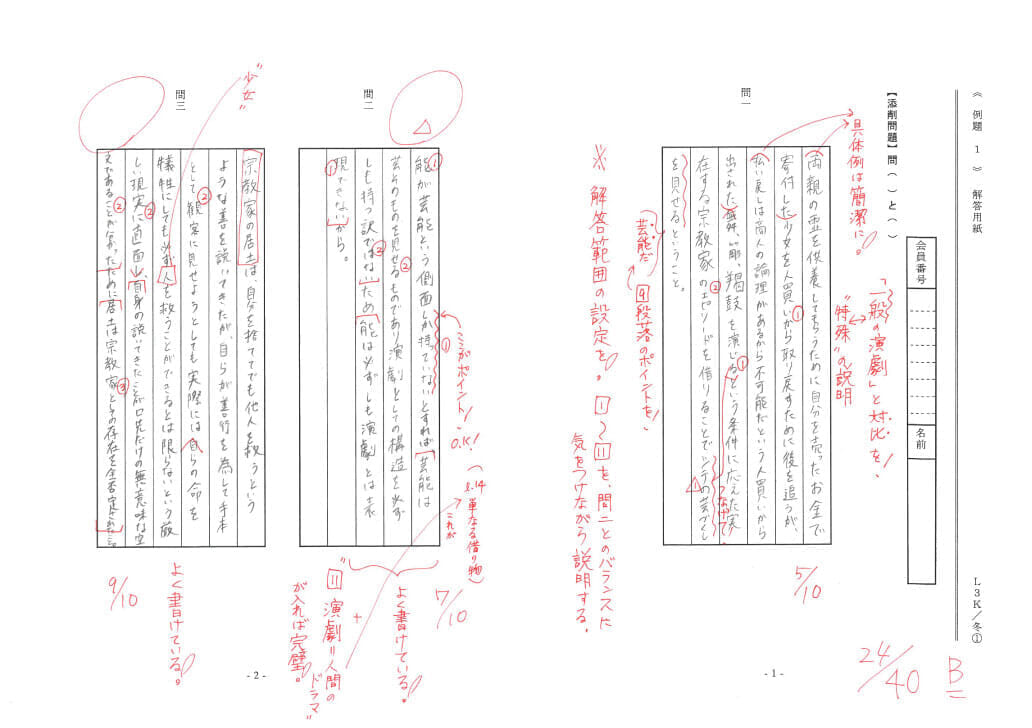 《 例題 1 》 解答用紙
L3K/冬①
【添削問題】問( )と( )
会員番号
名前
24/40
B
問一
両親の霊を供養してもらうために自分を売ったお金で
寄付した少女を人買いから取り戻すために後を追うが、
払い戻しは商人の論理があるから不可能だという人買いから
出された舞、簓、羯鼓を演じるという条件に応えた実
在する宗教家のエピソードを借りることでシテの芸づくし
を見せるということ。
具体例は簡潔に。
「一般の演劇」と対比を!
"特殊"の説明
つなげて!
5/10
芸能だ
9段落のポイントを!
※ 解答範囲の設定を。1〜11を、問二とのバランスに
気をつけながら説明する。
- 1 -
問二
能が芸能という側面しか持っていないとすれば芸能は
芸そのものを見せるものであり演劇としての構造を必ず
しも持つ訳ではないため能は必ずしも演劇とは表
現できないから。
ここがポイント! O.K!
(l.14 単なる借り物)
これが
7/10
よく書けている。
+
"11 演劇=人間のドラマ"
が入れば完璧。
問三
宗教家の居士は、自分を捨ててでも他人を救うという
ような善を説いてきたが、自らが善行を為して手本
として観客に見せようとしても実際には自らの命を
犠牲にしても必ず人を救うことができるとは限らないという厳
しい現実に直面し、自身の説いてきたことが口先だけの無意味な空
"少女"
9/10
よく書けている。
- 2 -